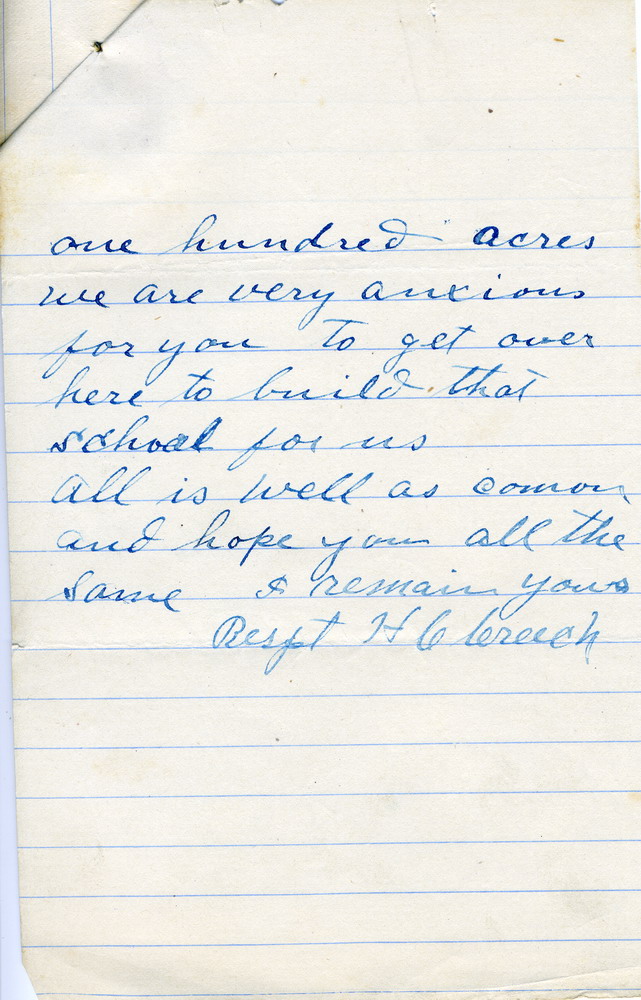 one hundred acres
we are very anxious
for you to get over
here to build that
school for us
all is well as comon
and hope you all the
same I remain yours
Respt H C Creech